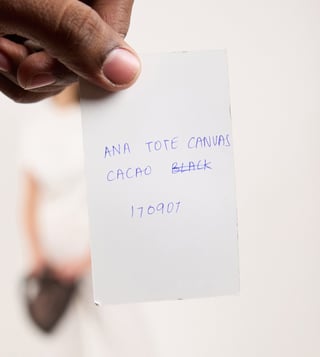 ANA TOTE CANVAS
CACAO BLACK
170907